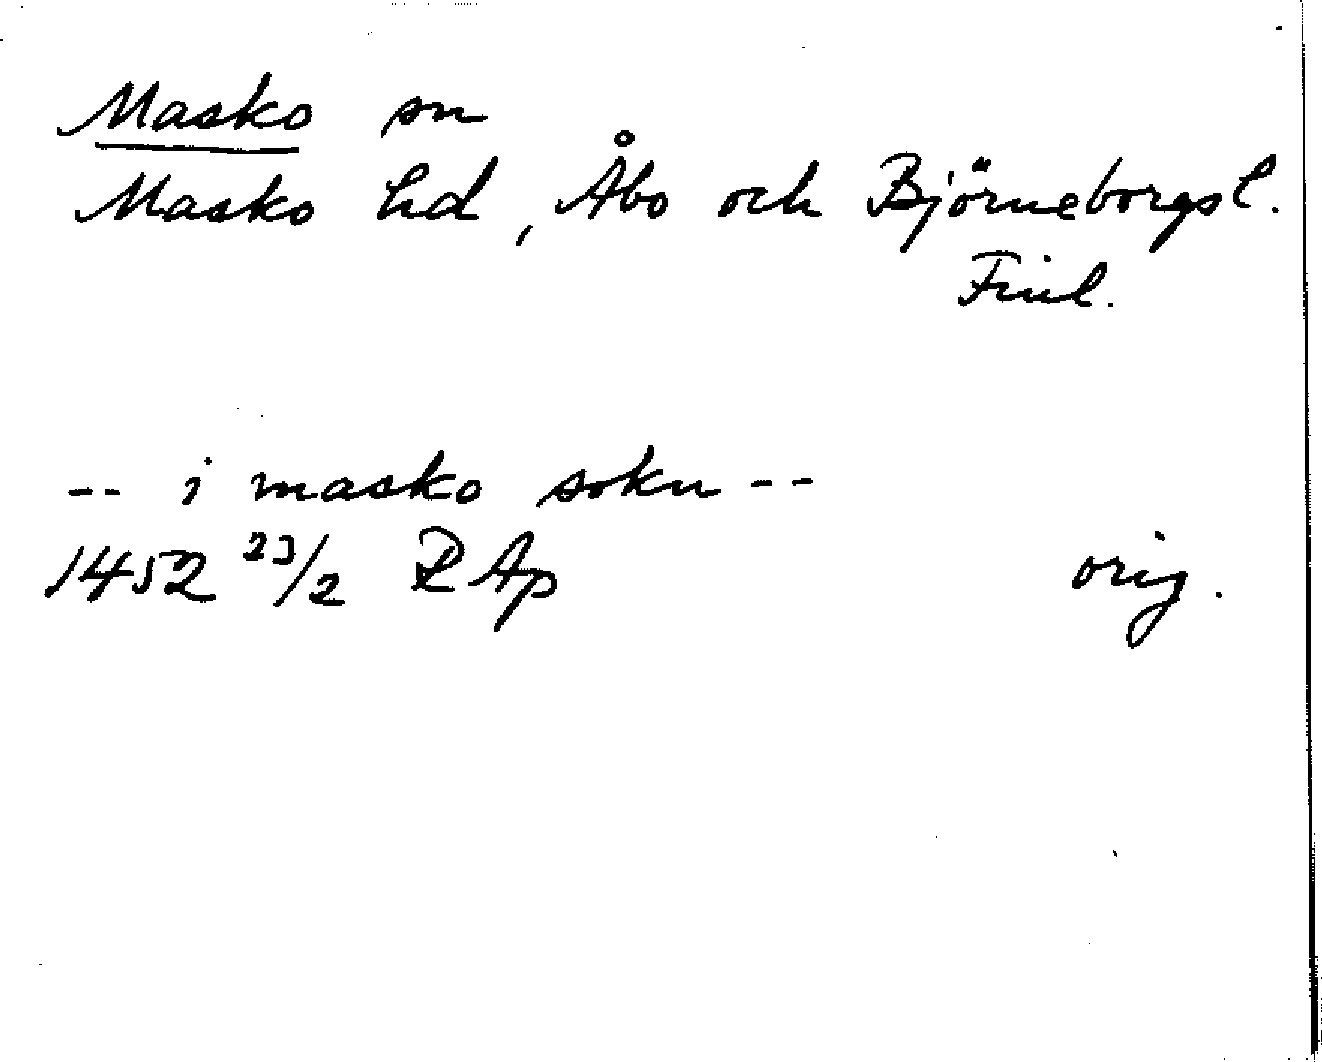 Masko sn
Masko hd, Åbo och Björneborgs l.
Finl.
-- i masko sokn --
1452 23/2 RAp orig.